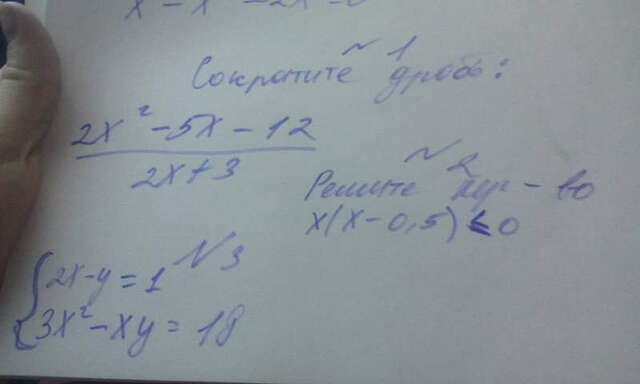 № 1
Сократите дробь:
2x² - 5x - 12
2x + 3
№ 2
Решите - во
x(x - 0,5) ≤ 0
№ 3
2x - y = 1
3x² - xy = 18